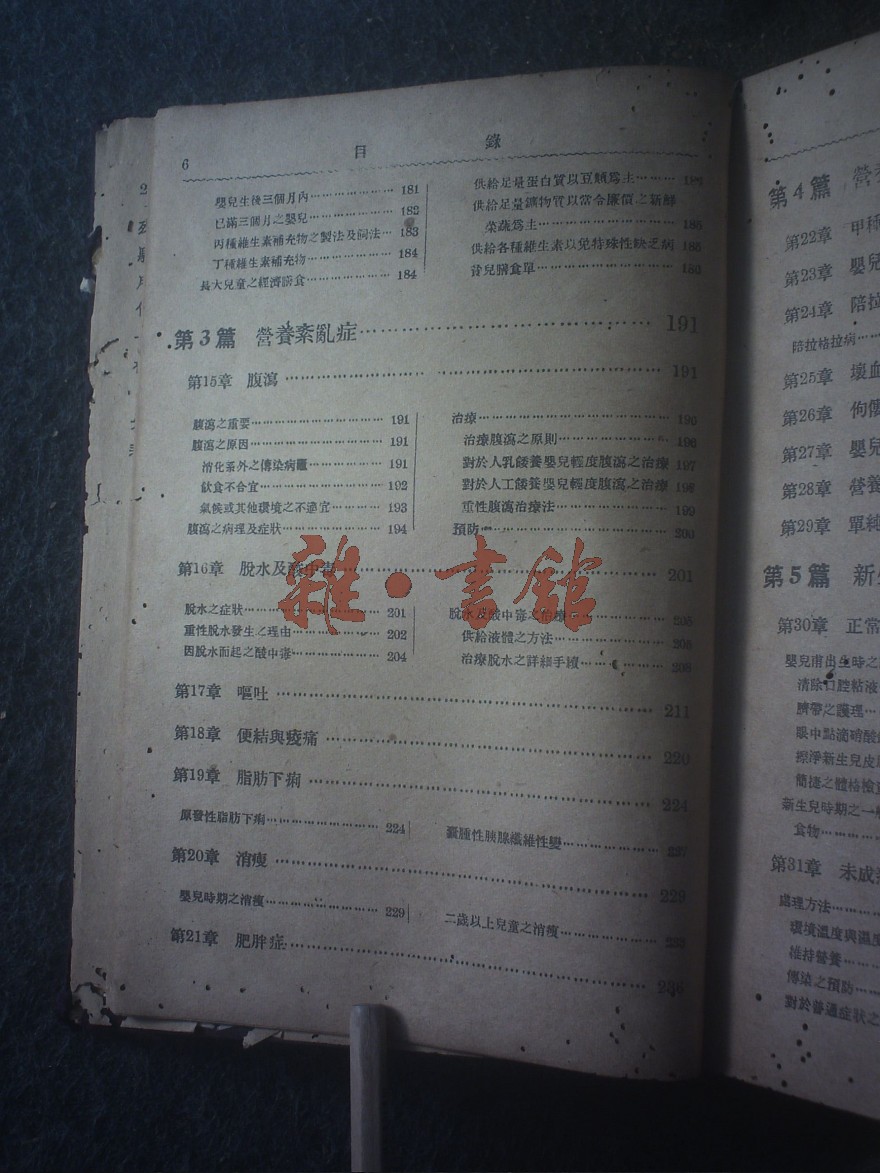 6
目 錄
嬰兒生後三個月內 181
已滿三個月之嬰兒 182
丙種維生素補充物之製法及飼法 183
丁種維生素補充物 184
長大兒童之經濟膳食 184
供給足量蛋白質以豆類爲主
供給足量鑛物質以當令廉價之新鮮
菜蔬爲主
供給各種維生素以免特殊性缺乏病
第3篇 營養紊亂症 191
第15章 腹瀉 191
腹瀉之重要 191
腹瀉之原因 191
消化系外之傳染病竈 191
飲食不合宜 192
氣候或其他環境之不適宜 193
腹瀉之病理及症狀 194
治療 196
治療腹瀉之原則 196
對於人乳餧養嬰兒輕度腹瀉之治療 197
對於人工餧養嬰兒輕度腹瀉之治療 198
重性腹瀉治療法 199
預防 200
第16章 脫水及酸中毒 201
脫水之症狀 201
重性脫水發生之理由 202
因脫水而起之酸中毒 204
脫水及酸中毒之治療 205
供給液體之方法
治療脫水之詳細手續
雜·書館
第17章 嘔吐 211
第18章 便結與痠痛 220
第19章 脂肪下痢 224
原發性脂肪下痢 224
囊腫性胰腺纖維性變 227
第20章 消瘦 229
嬰兒時期之消瘦 229
二歲以上兒童之消瘦
第21章 肥胖症 236
第4篇
第22章
第23章 嬰兒
第24章 陪拉
陪拉格拉病
第25章 壞血
第26章 佝僂
第27章 嬰兒
第28章 營養
第29章 單純
第5篇 新
第30章 正常
嬰兒甫出生時之
清除口腔粘液
臍帶之護理
眼中點滴硝酸
擦淨新生兒皮
簡捷之體格檢
新生兒時期之一
食物
第31章 未成
處理方法
環境溫度與濕度
維持營養
傳染之預防
對於普通症狀之